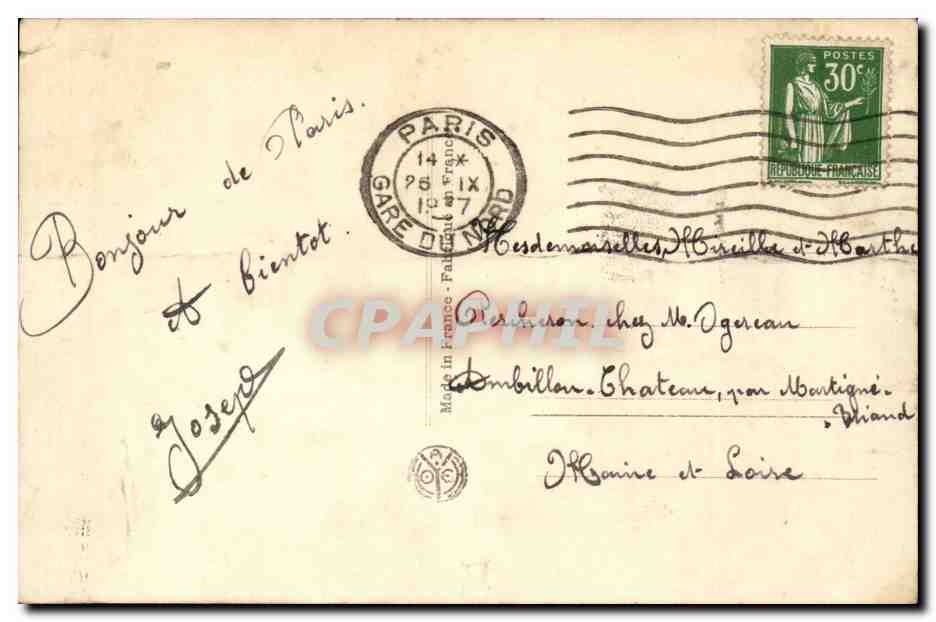 Bonjour de Paris.
A bientot.
Joseph
PARIS
14 X
25 IX
GARE DU NORD
POSTES
30c
REPUBLIQUE-FRANÇAISE
Made in France - Fabriqué en France
Mesdemoiselles Mireille et Marthe
Percheron, chez M. Ogereau
Ambillou-Chateau, par Martigné-
Briand
Maine et Loire
CPAPHIL